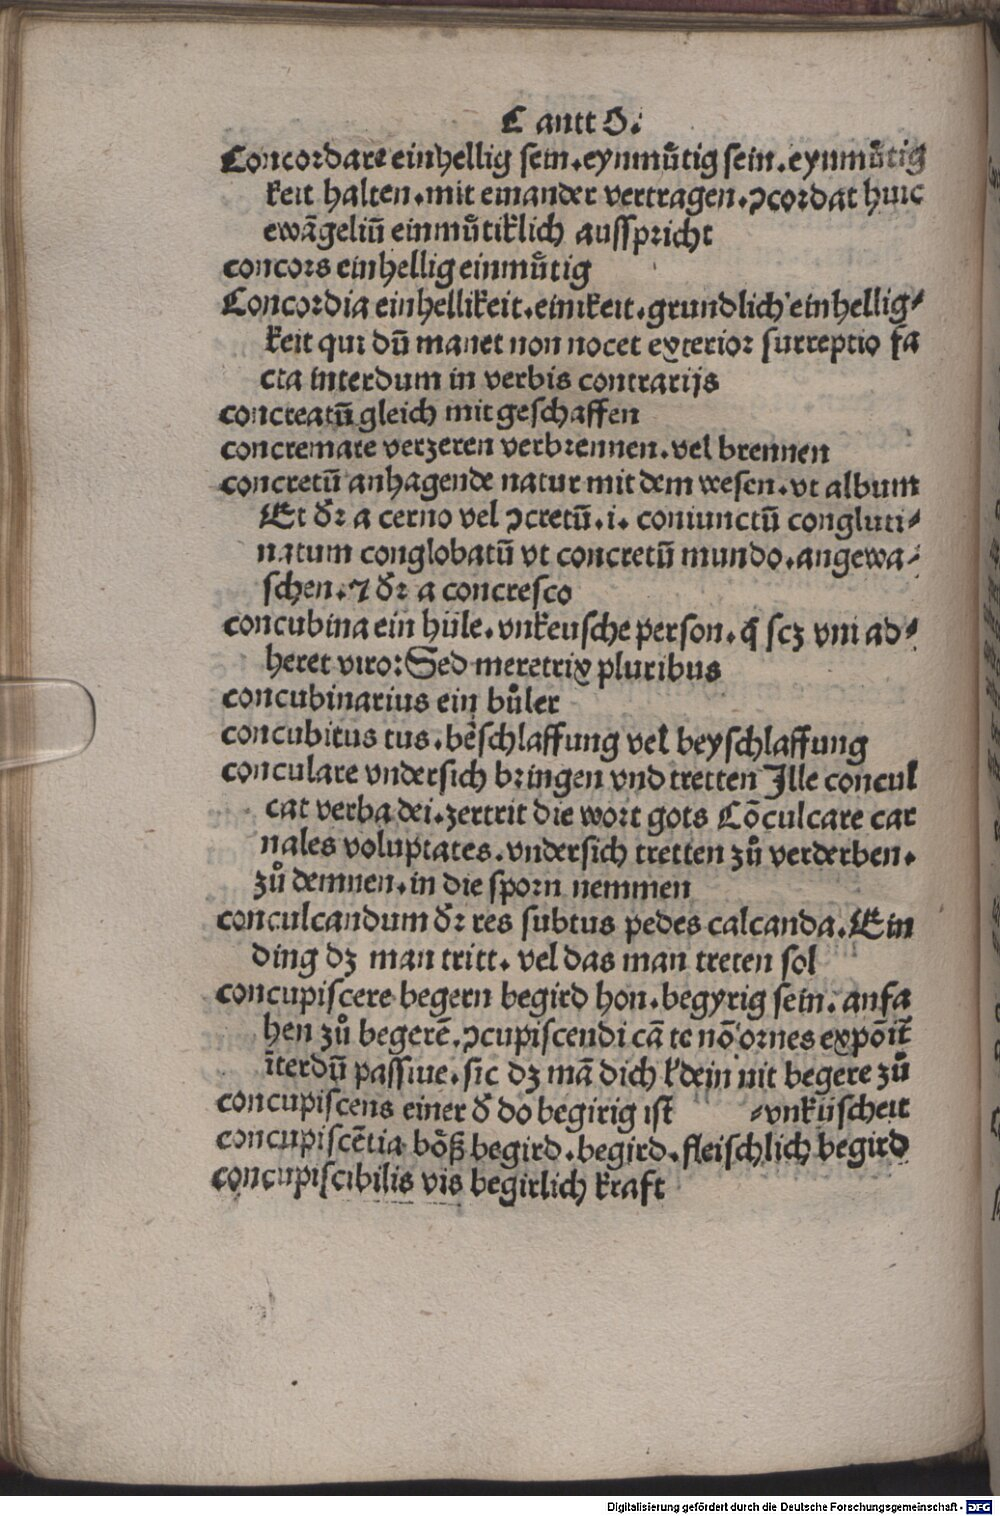 C antt O.
Concordare einhellig sein. eynmuͤtig sein. eynmuͤtig
keit halten. mit einander vertragen. ꝯcordat huic
ewãgeliũ einmuͤtiklich ausspricht
concors einhellig einmuͤtig
Concordia einhellikeit. einikeit. grundlich einhellig⸗
keit qui dũ manet non nocet exterior surreptio fa
cta interdum in verbis contrarijs
concreatũ gleich mit geschaffen
concremare verzeren verbrennen. vel brennen
concretũ anhagende natur mit dem wesen. vt album
Et dꝛ a cerno vel ꝯcretũ. i. coniunctũ congluti⸗
natum conglobatũ vt concretũ mundo. angewa⸗
schen. ⁊ dꝛ a concresco
concubina ein hüle. vnkeusche person. q̃ scꝫ vni ad⸗
heret viro: Sed meretrix pluribus
concubinarius ein buͦler
concubitus tus. bẽschlaffung vel beyschlaffung
conculare vndersich bringen vnd tretten Ille concul
cat verba dei. zertrit die wort gots Cõculcare car
nales voluptates. vndersich tretten zuͦ verderben.
zuͦ demnen. in die sporn nemmen
conculcandum dꝛ res subtus pedes calcanda. Ein
ding dꝫ man tritt. vel das man treten sol
concupiscere begern begird hon. begyrig sein. anfa
hen zuͦ begerẽ. ꝯcupiscendi cã te nõ ornes expõit̃
ĩterdũ passiue. sic dꝫ mã dich ł dein nit begere zuͦ
concupiscens einer đ do begirig ist ⸗vnküscheit
concupiscẽtia boͤß begird. begird. fleischlich begird
concupiscibilis vis begirlich kraft
Digitalisierung gefördert durch die Deutsche Forschungsgemeinschaft - DFG